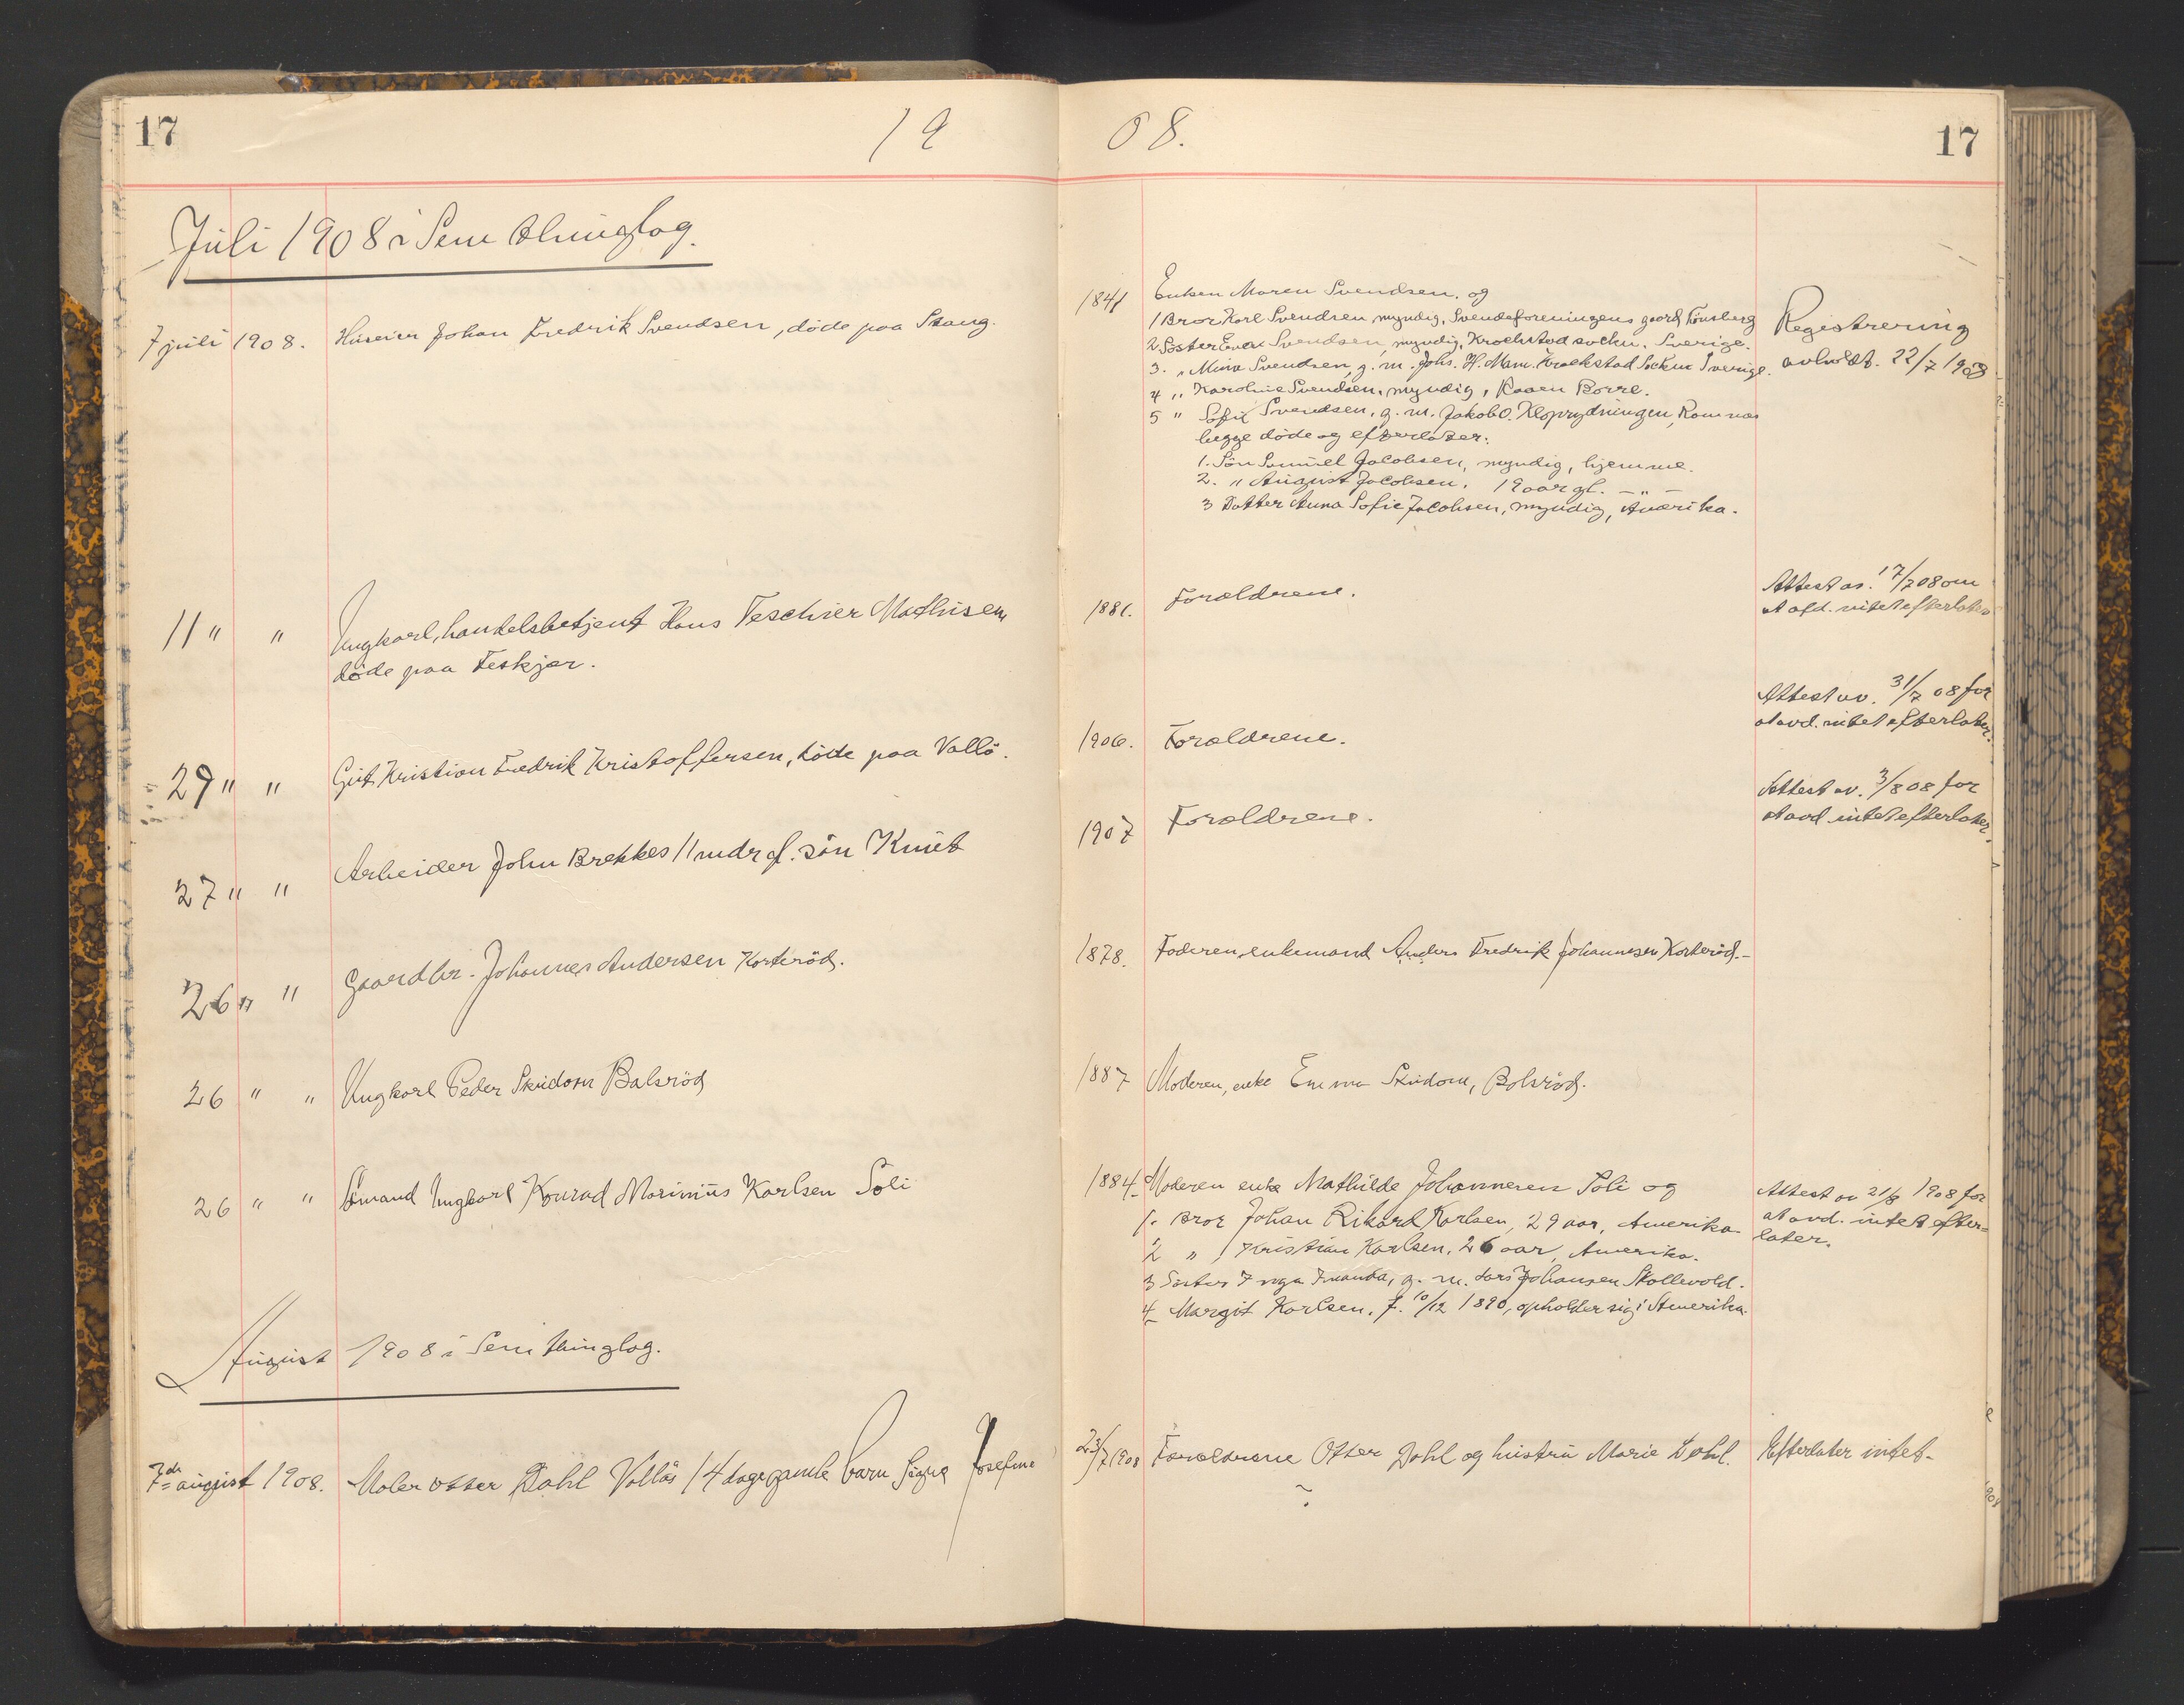 17
19
08.
17
Juli 1908 i Sem thinglag.
7 juli 1908. Huseier Johan Fredrik Svendsen, döde paa Stang.
1841 Enken Maren Svendsen. og
1 Bror Karl Svendsen myndig, Svendeforeningens gaard Tönsberg
2. Söster Svendsen, myndig, Krochstad sochn. Sverige.
3. " Mina Svendsen, g. m. Johs. H. Krochstad Sochn Sverige.
4 " Karoline Svendsen, myndig, Kaaen Borre.
5 " Sofie Svendsen, g. m. Jakob O. Kloprydningen, Ramnæs
begge döde og efterlater:
1. Sön Samuel Jacobsen, myndig, hjemme.
2. " August Jacobsen, 19 aar gl. — " —
3 Datter Anna Sofie Jacobsen, myndig, Amerika.
Registrering
avholdt. 22/7 1908
11 " " Ungkarl, handelsbetjent Hans Teschier Mathisen
döde paa Feskjær.
1881. Forældrene.
Attest av. 17/7 08 om
at afd. intet efterlater
29 " " Gut Kristian Fredrik Kristoffersen, döde paa Vallö.
1906. Forældrene.
Attest av. 31/7 08 for
at avd. intet efterlater.
27 " " Arbeider John Brekkes 11 mdr gl. sön Knut
1907 Forældrene.
Attest av. 3/8 08 for
at avd intet efterlater.
26 " " Gaardbr. Johannes Andersen Korteröd.
1878. Faderen, enkemand Anders Fredrik Johannesen Korteröd.-
26 " " Ungkarl Peder Skidom Balsröd
1887 Moderen, enke Emma Skidom, Bolsröd.
26 " " Sömand Ungkarl Konrad Marinius Karlsen Söli
1884. Moderen enke Mathilde Johannesen Söli og
1. Bror Johan Rikard Karlsen, 29 aar, Amerika
2 " Kristian Karlsen, 26 aar, Amerika.
3 Söster Inga Amanda, g. m. Lars Johansen Skollevold.
4 Margit Karlsen, f. 10/12 1890, opholder sig i Amerika
Attest av 21/8 1908 for
at avd. intet efter=
later.
August 1908 i Sem thinglag.
7de august 1908. Maler Otter Dahl Vallös 14 dage gamle barn Signe Josefine
23/7 1908 Forældrene Otter Dahl og hustru Marie Dahl.
Efterlater intet-